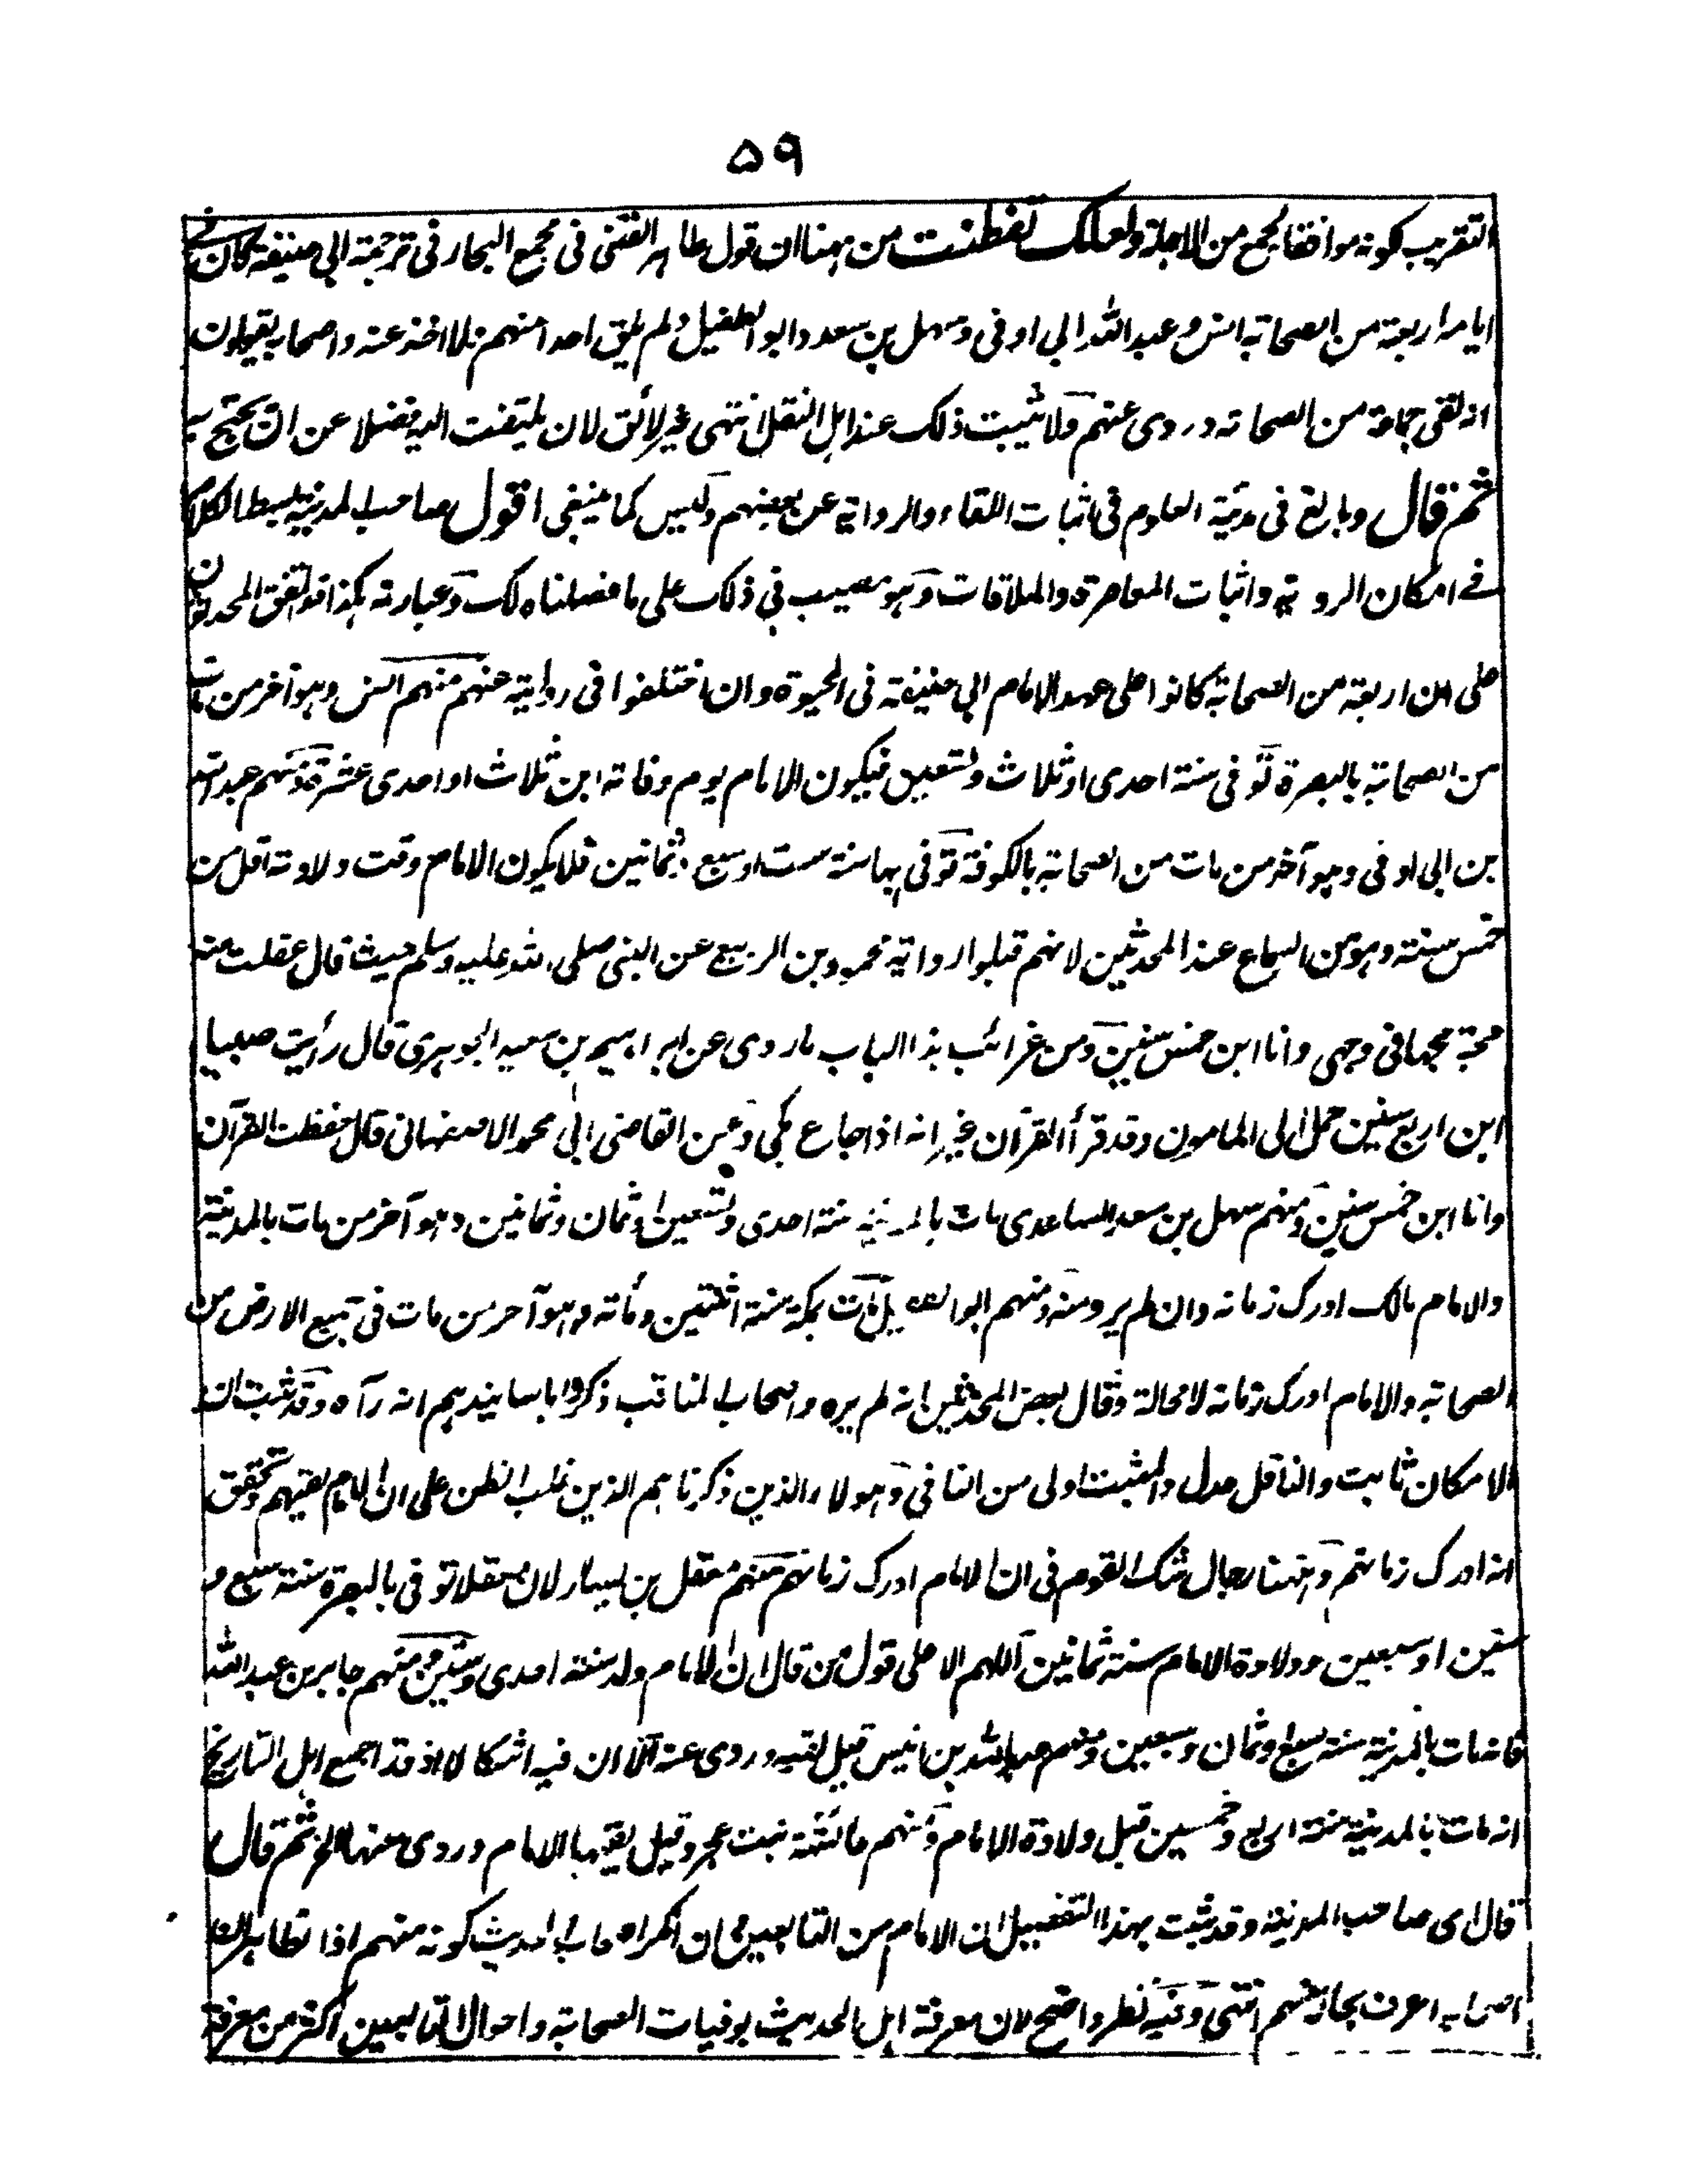 ۵۹
التقريب لكونه موافقا لجمع من الاجلة ولعلك تفطنت من ههنا ان قول طاهر الفتنى فى مجمع البحار فى ترجمة ابي حنيفة كان في
ايامه اربعة من الصحابة انس وعبد الله ابي اوفى وسهل بن سعد وابو الطفيل ولم يلق احدا منهم ولا اخذ عنه واصحابه يقولون
انه لقى جماعة من الصحابة وروى عنهم ولا يثبت ذلك عند اهل النقل انتهى غير لائق لان يلتفت اليه فضلا عن ان يحتج به
ثم قال وبالغ فى مدينة العلوم فى اثبات اللقاء والرواية عن بعضهم وليس كما ينبغى اقول صاحب المدينة بسط الكلام
في امكان الروية واثبات المعاصرة والملاقات وهو مصيب فى ذلك على ما فصلناه لك وعبارته هكذا قد اتفق المحدثون
على ان اربعة من الصحابة كانوا على عهد الامام ابي حنيفة فى الحيوة وان اختلفوا فى روايته عنهم منهم انس وهو آخر من مات
من الصحابة بالبصرة توفى سنة احدى او ثلاث وتسعين فيكون الامام يوم وفاته ابن ثلاث او احدى عشرة ومنهم عبد الله
بن ابي اوفى وهو آخر من مات من الصحابة بالكوفة توفى بها سنة ست او سبع وثمانين فلا يكون الامام وقت ولادته اقل من
خمس سنة وهو من السماع عند المحدثين لانهم قبلوا رواية محمود بن الربيع عن النبى صلى الله عليه وسلم حيث قال عقلت منه
مجة مجها فى وجهى وانا ابن خمس سنين ومن غرائب هذا الباب ما روى عن ابراهيم بن سعيد الجوهرى قال رأيت صبيا
ابن اربع سنين حمل الى المامون وقد قرأ القرآن غير انه اذا جاع بكى وعن القاضى ابي محمد الاصفهانى قال حفظت القرآن
وانا ابن خمس سنين ومنهم سهل بن سعد الساعدى مات بالمدينة سنة احدى وتسعين او ثمان وثمانين وهو آخر من مات بالمدينة
والامام مالك ادرك زمانه وان لم يرو منه ومنهم ابو الطفيل مات بمكة سنة اثنتين ومأته وهو آخر من مات فى جميع الارض من
الصحابة والامام ادرك زمانه لا محالة وقال بعض المحدثين انه لم يره واصحاب المناقب ذكروا باسانيدهم انه رآه وقد ثبت ان
الامكان ثابت والناقل عدل والمثبت اولى من النافى وهولاء الذين ذكرنا هم الذين غلب الظن على ان الامام لقيهم وتحقق
انه ادرك زمانهم وههنا رجال شك القوم فى ان الامام ادرك زمانهم منهم معقل بن يسار لان معقلا توفى بالبصرة سنة سبع و
ستين او سبعين وولادة الامام سنة ثمانين اللهم الا على قول من قال ان الامام ولد سنة احدى وستين ومنهم جابر بن عبد الله
فانه مات بالمدينة سنة سبع او ثمان وسبعين ومنهم عبد الله بن انيس قيل لقيه وروى عنه الا ان فيه اشكالا اذ قد اجمع اهل التاريخ
انه مات بالمدينة سنة اربع وخمسين قبل ولادة الامام ومنهم عائشة بنت عجرد قيل لقيها الامام وروى عنها الخ ثم قال
قال اى صاحب المدينة وقد ثبت بهذا التفصيل ان الامام من التابعين وان انكر اصحاب الحديث كونه منهم اذ الظاهر ان
اصحابه اعرف بحاله منهم انتهى وفيه نظر واضح لان معرفة اهل الحديث بوفيات الصحابة واحوال التابعين اكثر من معرفة